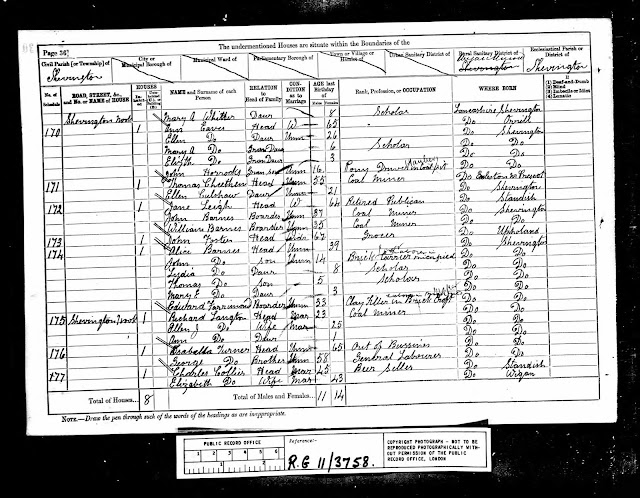 Page 36]
The undermentioned Houses are situate within the Boundaries of the
Civil Parish [or Township] of
Shevington
City or
Municipal Borough of
Municipal Ward of
Parliamentary Borough of
Town or Village or
Hamlet of
Urban Sanitary District of
Rural Sanitary District of
Shevington
Ecclesiastical Parish or
District of
Shevington
No. of Schedule
ROAD, STREET, &c., and No. or NAME of HOUSE
HOUSES
NAME and Surname of each Person
RELATION to Head of Family
CONDITION as to Marriage
AGE last Birthday of
Males
Females
Rank, Profession, or OCCUPATION
WHERE BORN
If
(1) Deaf-and-Dumb
(2) Blind
(3) Imbecile or Idiot
(4) Lunatic
Shevington Moor Mary A Whitter Daur 8 Scholar Lancashire Shevington
170 1 Ann Eaves Head W 65 Do Orrell
Ellen Do Daur Unm 26 Do Shevington
Mary A Do Gran Daur 6 Scholar Do Do
Elizth Do Gran Daur 3 Do Do
John Horrocks Gran son Unm 16 Pony Driver in Coal pit Do Do
171 1 Thomas Cheethem Head 55 Coal Miner Do Prescot
Ellen Culshaw Daur 21 Do Shevington
172 1 Jane Leigh Head W 64 Retired Publican Do Standish
John Barnes Boarder Unm 37 Coal Miner Do Shevington
William Barnes Boarder Unm 35 Coal Miner Do Do
173 1 John Foster Head 67 Grocer Do Upholland
174 1 Alice Barnes Head Unm 39 Do Shevington
John Do Son Unm 14 Brick Carrier Do Do
Lydia Do Daur 8 Scholar Do Do
Thomas Do Son 5 Scholar Do Do
Mary E Do Daur 3 Do Do
Edward Farrimond Boarder Unm 33 Clay Filler in Brick Croft Do Do
175 Shevington Moor 1 Richard Langton Head Mar 23 Coal Miner Do Do
Ellen J Do Wife Mar 25 Do Do
Ann Do Daur 1 Do Do
176 1 Isabella Turner Head Unm 65 Out of Business Do Do
George Do Brother Unm 58 General Labourer Do Do
177 1 Charles Collier Head Mar 45 Beer Seller Do Standish
Elizabeth Do Wife Mar 43 Do Wigan
Total of Houses... 8
Total of Males and Females... 11 14
NOTE.—Draw the pen through such of the words of the headings as are inappropriate.
PUBLIC RECORD OFFICE
1 2 3 4 5 6
1 2
Reference:-
R.G 11/3758.
COPYRIGHT PHOTOGRAPH - NOT TO BE
REPRODUCED PHOTOGRAPHICALLY WITH-
OUT PERMISSION OF THE PUBLIC
RECORD OFFICE, LONDON